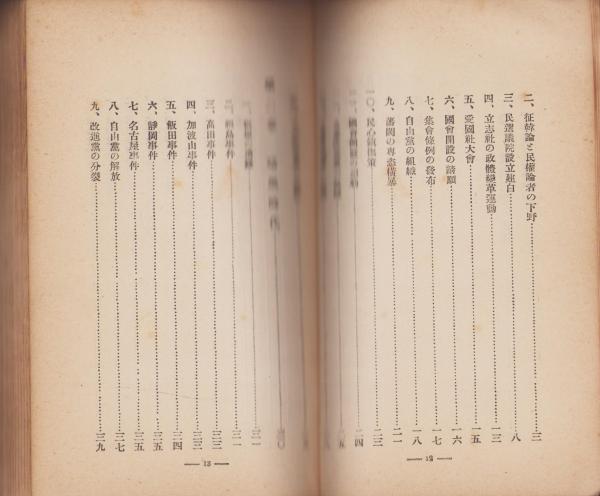 二、征韓論と民權論者の下野……三
三、民選議院設立建白……八
四、立志社の政體變革運動……一三
五、愛國社大會……一五
六、國會開設の請願……一六
七、集會條例の發布……一七
八、自由黨の組織……一八
九、藩閥の專恣橫暴……二一
一〇、民心……策……二三
二四
— 12 —
三一
二、福島事件……三一
三、高田事件……三三
四、加波山事件……三三
五、飯田事件……三四
六、靜岡事件……三五
七、名古屋事件……三五
八、自由黨の解放……三七
九、改進黨の分裂……三九
— 13 —